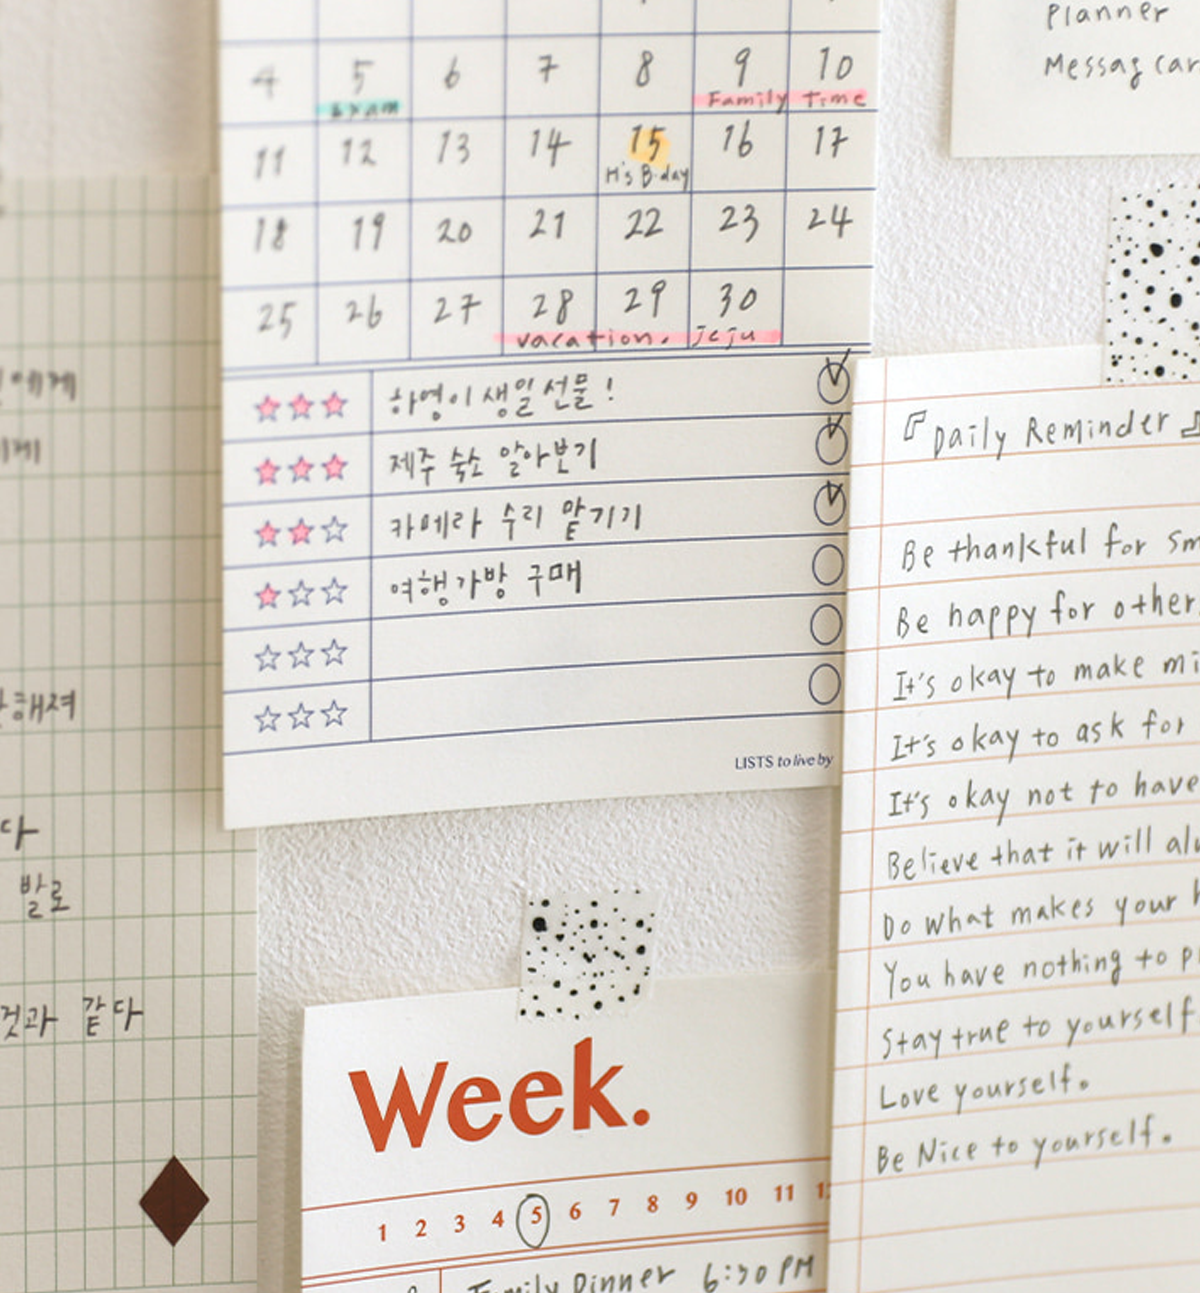 Planner
Messag car
4 5 6 7 8 9 10
Exam
Family Time
11 12 13 14 15 16 17
H's B-day
18 19 20 21 22 23 24
25 26 27 28 29 30
vacation. Jeju
하영이 생일선물!
제주 숙소 알아보기
카메라 수리 맡기기
여행가방 구매
LISTS to live by
에게
에게
해져
다
발로
것과 같다
『Daily Reminder
Be thankful for sm
Be happy for other
It's okay to make mi
It's okay to ask for
It's okay not to have
Believe that it will alw
Do what makes your h
You have nothing to p
Stay true to yourself.
Love yourself.
Be Nice to yourself.
Week.
1 2 3 4 5 6 7 8 9 10 11
Family Dinner 6:30 PM